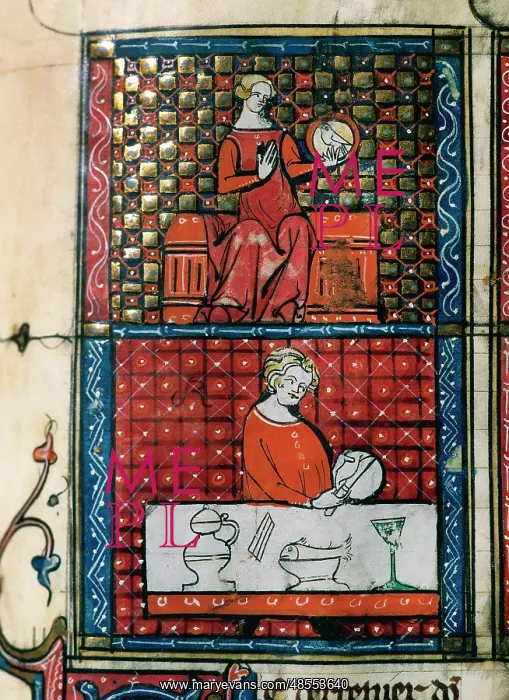 ME
PL
ME
PL
www.maryevans.com/48553640